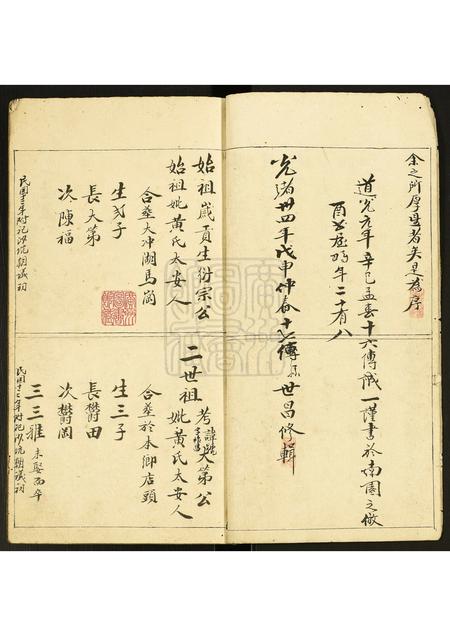 余之所厚望者矣是為序
道光元年辛巳孟春十六傳誠一謹書於南園之傲
酉書屋時年二十有八
光緒卅四年戊申仲春十七傳孫世昌修輯
始祖歲貢生衍宗公
始祖妣黃氏太安人
合葬大冲湖馬崗
生弍子
長大第
次陳福
民國十三年附記沙坑朝議祠
二世祖考諱大第公
妣黃氏太安人
合葬於本鄉店頭
生三子
長欝田
次欝岡
三三雅 未娶而卒
民國十三年附記沙坑朝議祠